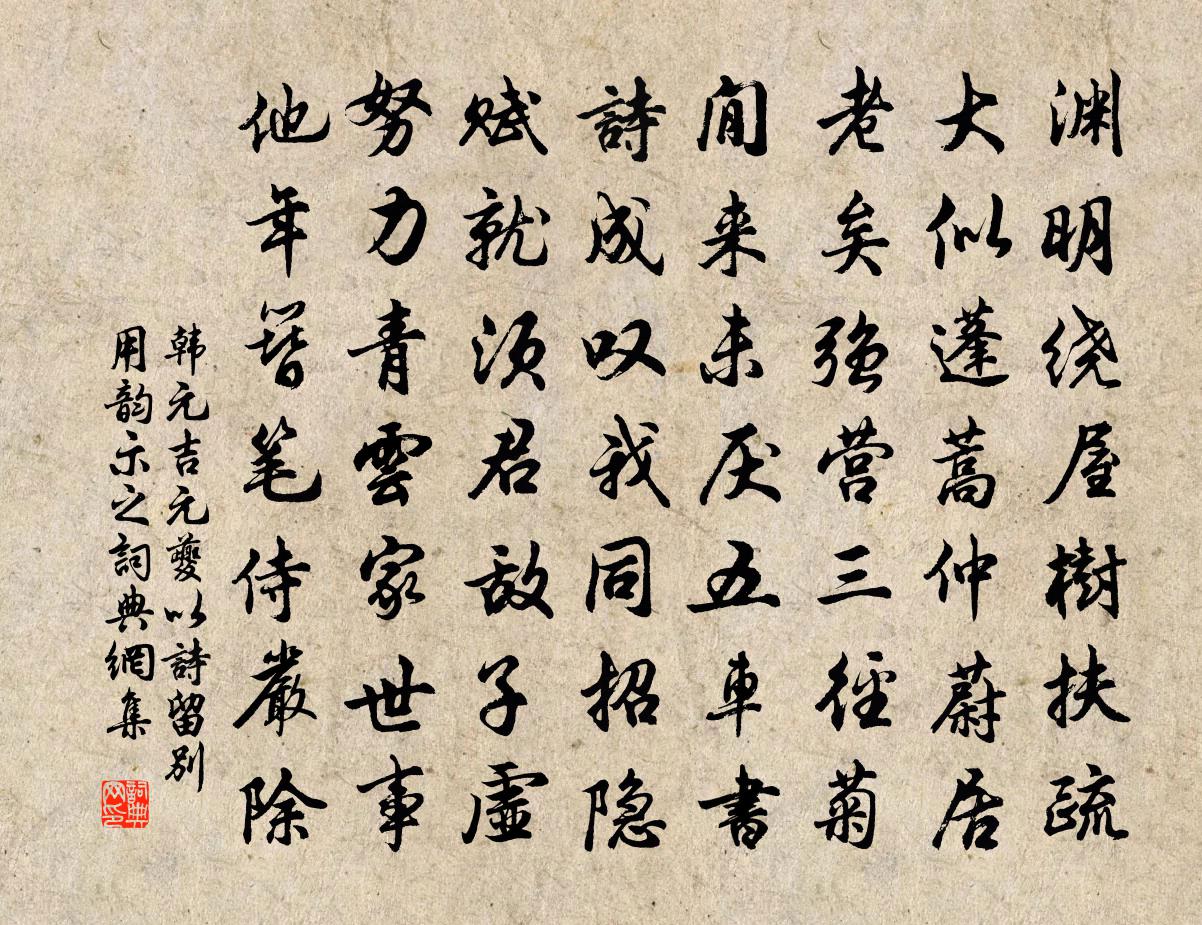 渊明绕屋樹扶疏
大似蓬蒿仲蔚居
老矣强营三径菊
閒来未厌五車書
詩成叹我同招隐
赋就须君敌子虚
努力青雲家世事
他年簪笔侍嚴除
韩元吉元夔以詩留别
用韵示之詞典網集
詞典网印